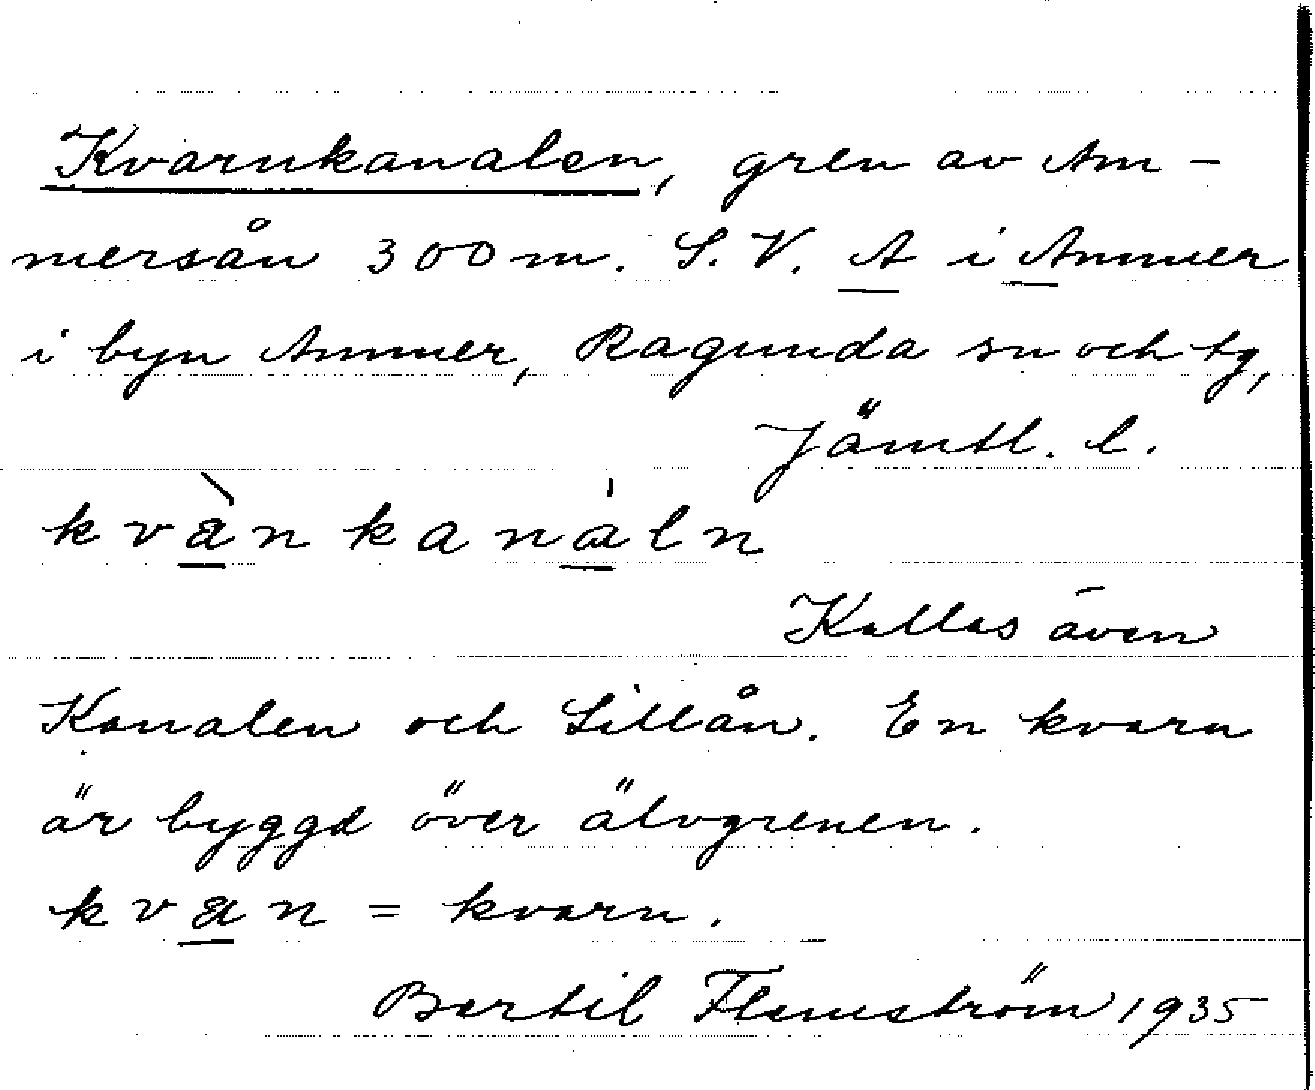 Kvarnkanalen, gren av Am-
mersån 300 m. S.V. A i Ammer
i byn Ammer, Ragunda sn och tg,
Jämtl. l.
kvànkanáln
Kallas även
Kanalen och Lillån. En kvarn
är byggd över älvgrenen.
kvan = kvarn.
Bertil Flemström 1935